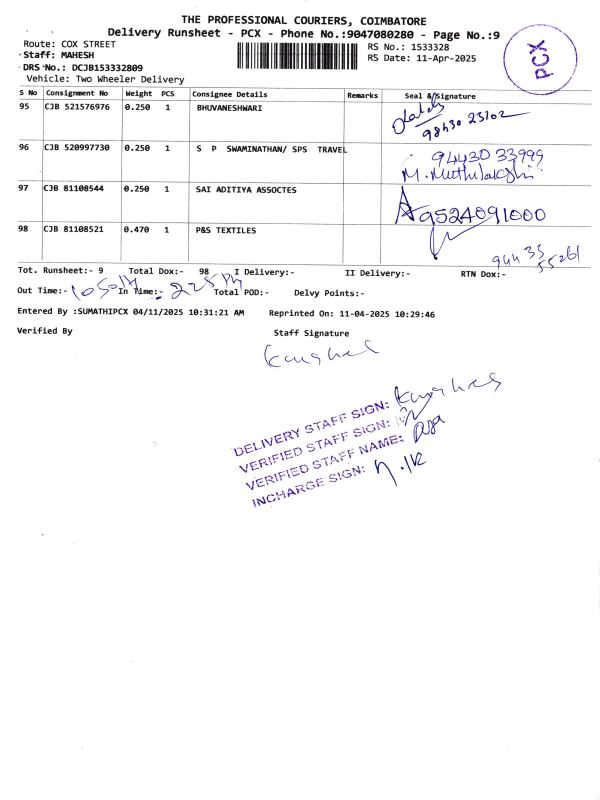 THE PROFESSIONAL COURIERS, COIMBATORE
Delivery Runsheet - PCX - Phone No.:9047080280 - Page No.:9
Route: COX STREET
Staff: MAHESH
DRS No.: DCJB153332809
Vehicle: Two Wheeler Delivery
RS No.: 1533328
RS Date: 11-Apr-2025
PCX
S No Consignment No Weight PCS Consignee Details Remarks Seal & Signature
95 CJB 521576976 0.250 1 BHUVANESHWARI
98430 23102
96 CJB 520997730 0.250 1 S P SWAMINATHAN/ SPS TRAVEL
94430 33999
M. Muthulakshi
97 CJB 81108544 0.250 1 SAI ADITIYA ASSOCTES
9524091000
98 CJB 81108521 0.470 1 P&S TEXTILES
944 33
55261
Tot. Runsheet:- 9 Total Dox:- 98 I Delivery:- II Delivery:- RTN Dox:-
Out Time:- In Time:- 225 PM Total POD:- Delvy Points:-
Entered By :SUMATHIPCX 04/11/2025 10:31:21 AM Reprinted On: 11-04-2025 10:29:46
Verified By Staff Signature
DELIVERY STAFF SIGN:
VERIFIED STAFF SIGN:
VERIFIED STAFF NAME:
INCHARGE SIGN: